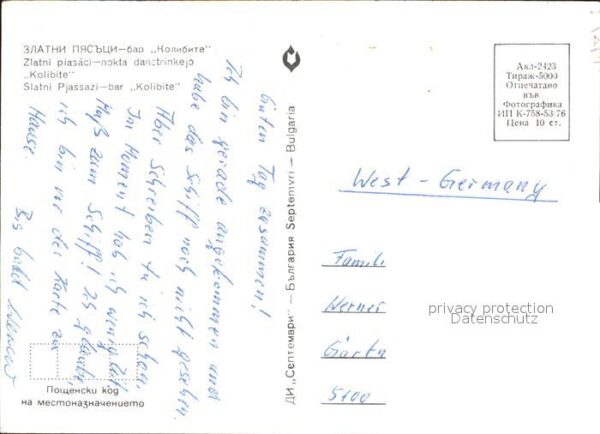 ЗЛАТНИ ПЯСЪЦИ—бар „Колибите"
Zlatni piasăci—nokta danctrinkejo
„Kolibite"
Slatni Pjassazi—bar „Kolibite"
Guten Tag zusammen!
Ich bin gerade angekommen und
habe das Schiff noch nicht gesehen.
Aber Schreiben tu ich schon,
Im Moment hab ich wenig Zeit
Muß zum Schiff! Ich glaube,
ich bin vor der Karte zu
Hause.
Bis bald Werner
Пощенски код
на местоназначението
ДИ „Септември" — България Septemvri — Bulgaria
Акл-2423
Тираж-5000
Отпечатано
във
Фотографика
ИП К-758-53/76
Цена 10 ст.
West - Germany
Famili
Werner
Gärtn
5100
privacy protection
Datenschutz